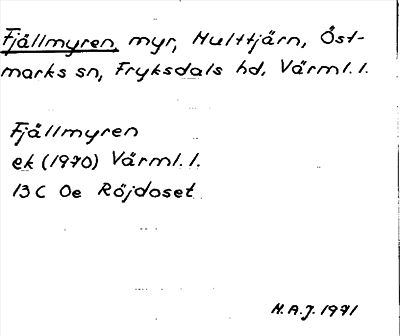 Fjällmyren, myr, Hulttjärn, Öst-
marks sn, Fryksdals hd, Värml. l.
Fjällmyren
ek (1970) Värml. l.
13 C Oe Röjdoset
H.A.J. 1971